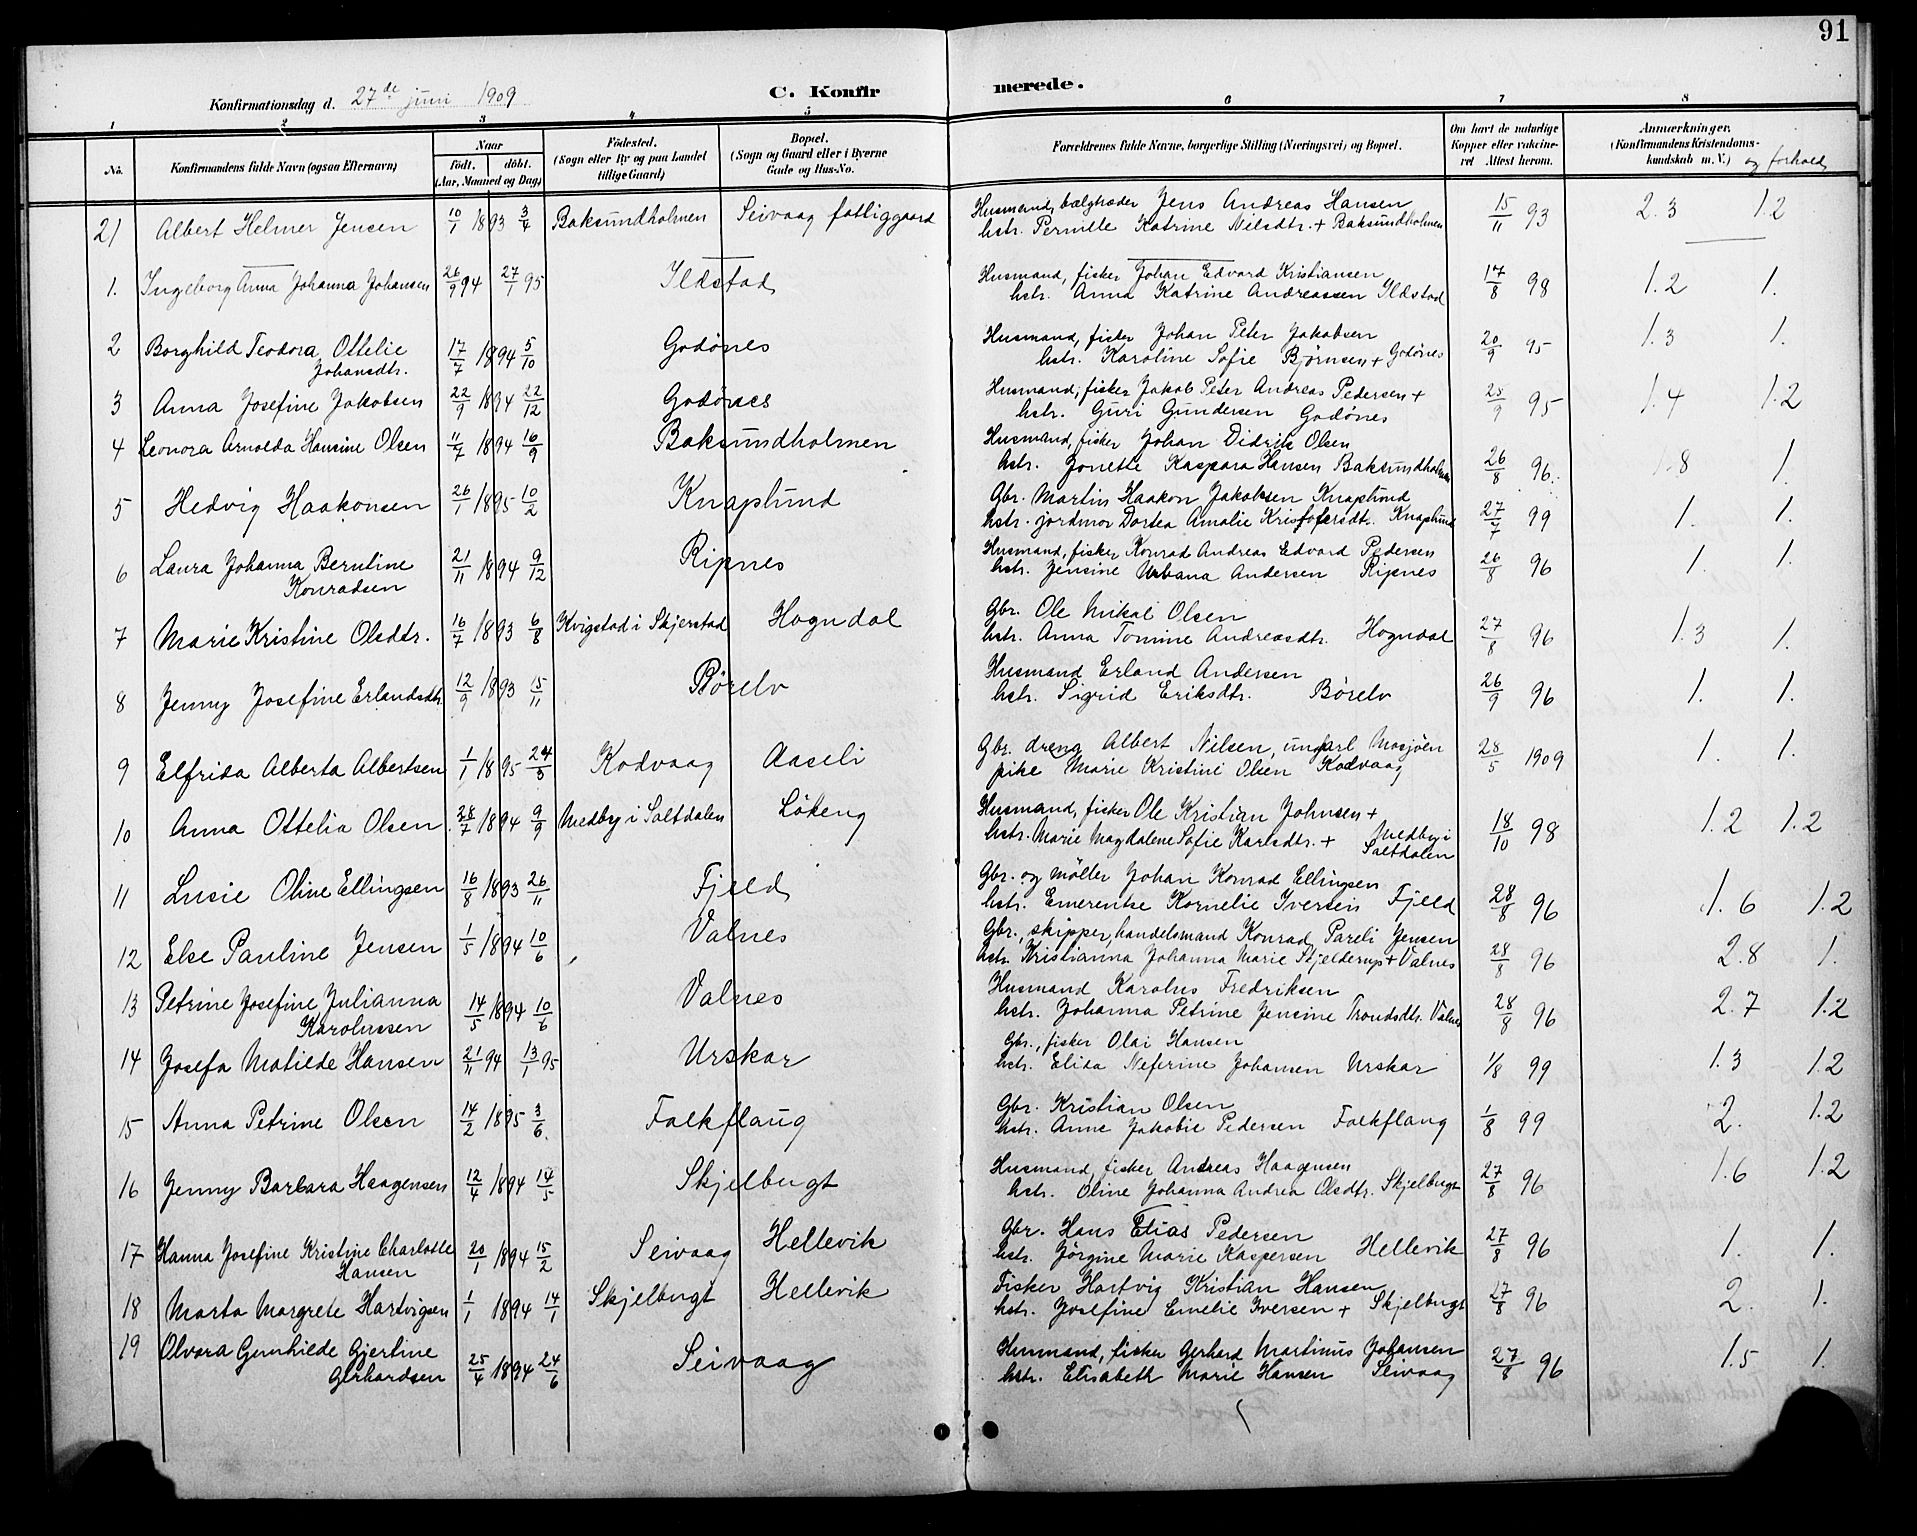 91
Konfirmationsdag d. 27de juni 1909 C. Konfirmerede.
1 2 3 4 5 6 7 8
No. Konfirmandens fulde Navn (ogsaa Efternavn) Naar født. døbt. (Aar, Maaned og Dag) Fødested. (Sogn eller By og paa Landet tillige Gaard) Bopæl. (Sogn og Gaard eller i Byerne Gade og Hus-No. Forældrenes fulde Navne, borgerlige Stilling (Næringsvei) og Bopæl. Om havt de naturlige Kopper eller vaccineret Attest herom. Anmærkninger. (Konfirmandens Kristendomskundskab m. V.) og forhold
21 Albert Helmer Jensen 10/1 1893 3/4 Baksundholmen Seivaag fatliggaard Husmand, bælgtræder Jens Andreas Hansen 15/11 93 2.3 1.2
hstr. Pernille Katrine Nilsdtr. + Baksundholmen
1. Ingeborg Anna Johanna Johansen 26/9 94 27/1 95 Ildstad Husmand, fisker Johan Edvard Kristiansen 17/8 98 1.2 1.
hstr. Anna Katrine Andreassen Ildstad
2 Borghild Teodora Ottelie 17/7 1894 5/10 Godønes Husmand, fisker Johan Peter Jakobsen 20/9 95 1.3 1.
Johansdtr. hstr. Karoline Sofie Bjørnsen + Godønes
3 Anna Josefine Jakobsen 22/9 1894 22/12 Godønes Husmand, fisker Jakob Peter Andreas Pedersen + 28/9 95 1.4 1.2
hstr. Guri Gundersen Godønes
4 Leonora Arnolda Hansine Olsen 11/7 1894 16/9 Baksundholmen Husmand, fisker Johan Didrik Olsen 26/8 96. 1.8 1.
hstr. Jonette Kaspara Hansen Baksundholmen
5 Hedvig Haakonsen 26/1 1895 10/2 Knaplund Gbr. Martin Haakon Jakobsen Knaplund 27/7 99 1. 1.
hstr. jordmor Dortea Amalie Kristofersdtr. Knaplund
6 Laura Johanna Berntine 21/11 1894 9/12 Ripnes Husmand, fisker Konrad Andreas Edvard Pedersen 26/8 96 1. 1.
Konradsen hstr. Jensine Urbana Andersen Ripnes
7 Marie Kristine Olsdtr. 16/7 1893 6/8 Kvigstad i Skjerstad Hogndal Gbr. Ole Mikal Olsen 27/8 96 1.3 1.
hstr. Anna Tomine Andreasdtr. Hogndal
8 Jenny Josefine Erlandsdtr. 12/9 1893 15/11 Børelv Husmand Erland Andersen 26/9 96 1. 1.
hstr. Sigrid Eriksdtr. Børelv
9 Elfrida Alberta Albertsen 1/1 1895 24/3 Kodvaag Aaseli Gbr. dreng Albert Nilsen, ungkarl Mosjøen 28/5 1909 1. 1.
pike Marie Kristine Olsen Kodvaag
10 Anna Ottelia Olsen 28/7 1894 9/9 Medby i Saltdalen Løkeng Husmand, fisker Ole Kristian Johnsen + 18/10 98 1.2 1.2
hstr. Marie Magdalene Sofie Karlsdtr. + Medby i Saltdalen
11 Lusie Oline Ellingsen 16/8 1893 26/11 Fjeld Gbr. og møller Johan Konrad Ellingsen 28/8 96 1.6 1.2
hstr. Emerentse Kornelie Iversen Fjeld
12 Else Pauline Jensen 1/5 1894 10/6 Valnes Gbr., skipper, handelsmand Konrad Pareli Jensen 28/8 96 2.8 1.
hstr. Kristianna Johanna Marie Skjelderup + Valnes
13 Petrine Josefine Julianna 14/5 1894 10/6 Valnes Husmand Karolus Fredriksen 28/8 96 2.7 1.2
Karolussen hstr. Johanna Petrine Jensine Trondsdtr. Valnes
14 Josefa Matilde Hansen 21/11 94 13/1 95 Urskar Gbr., fisker Olai Hansen 1/8 99 1.3 1.2
hstr. Elida Neferine Johansen Urskar
15 Anna Petrine Olsen 14/2 1895 3/6 Falkflaug Gbr. Kristian Olsen 1/8 99 2. 1.2
hstr. Anne Jakobie Pedersen Falkflaug
16 Jenny Barbara Haagensen 12/4 1894 14/5 Skjelbugt Husmand, fisker Andreas Haagensen 27/8 96 1.6 1.2
hstr. Oline Johanna Andrea Olsdtr. Skjelbugt
17 Hanna Josefine Kristine Charlotte 20/1 1894 15/2 Seivaag Hellevik Gbr. Hans Elias Pedersen 27/8 96 1. 1.
Hansen hstr. Jørgine Marie Kaspersen Hellevik
18 Marta Margrete Hartvigsen 1/1 1894 14/1 Skjelbugt Hellevik Fisker Hartvig Kristian Hansen 27/8 96 2. 1.
hstr. Josefine Emelie Iversen + Skjelbugt
19 Olvora Gunhilde Gjertine 25/4 1894 24/6 Seivaag Husmand, fisker Gerhard Martinus Johansen 27/8 96 1.5 1.
Gerhardsen hstr. Elisabeth Marie Hansen Seivaag